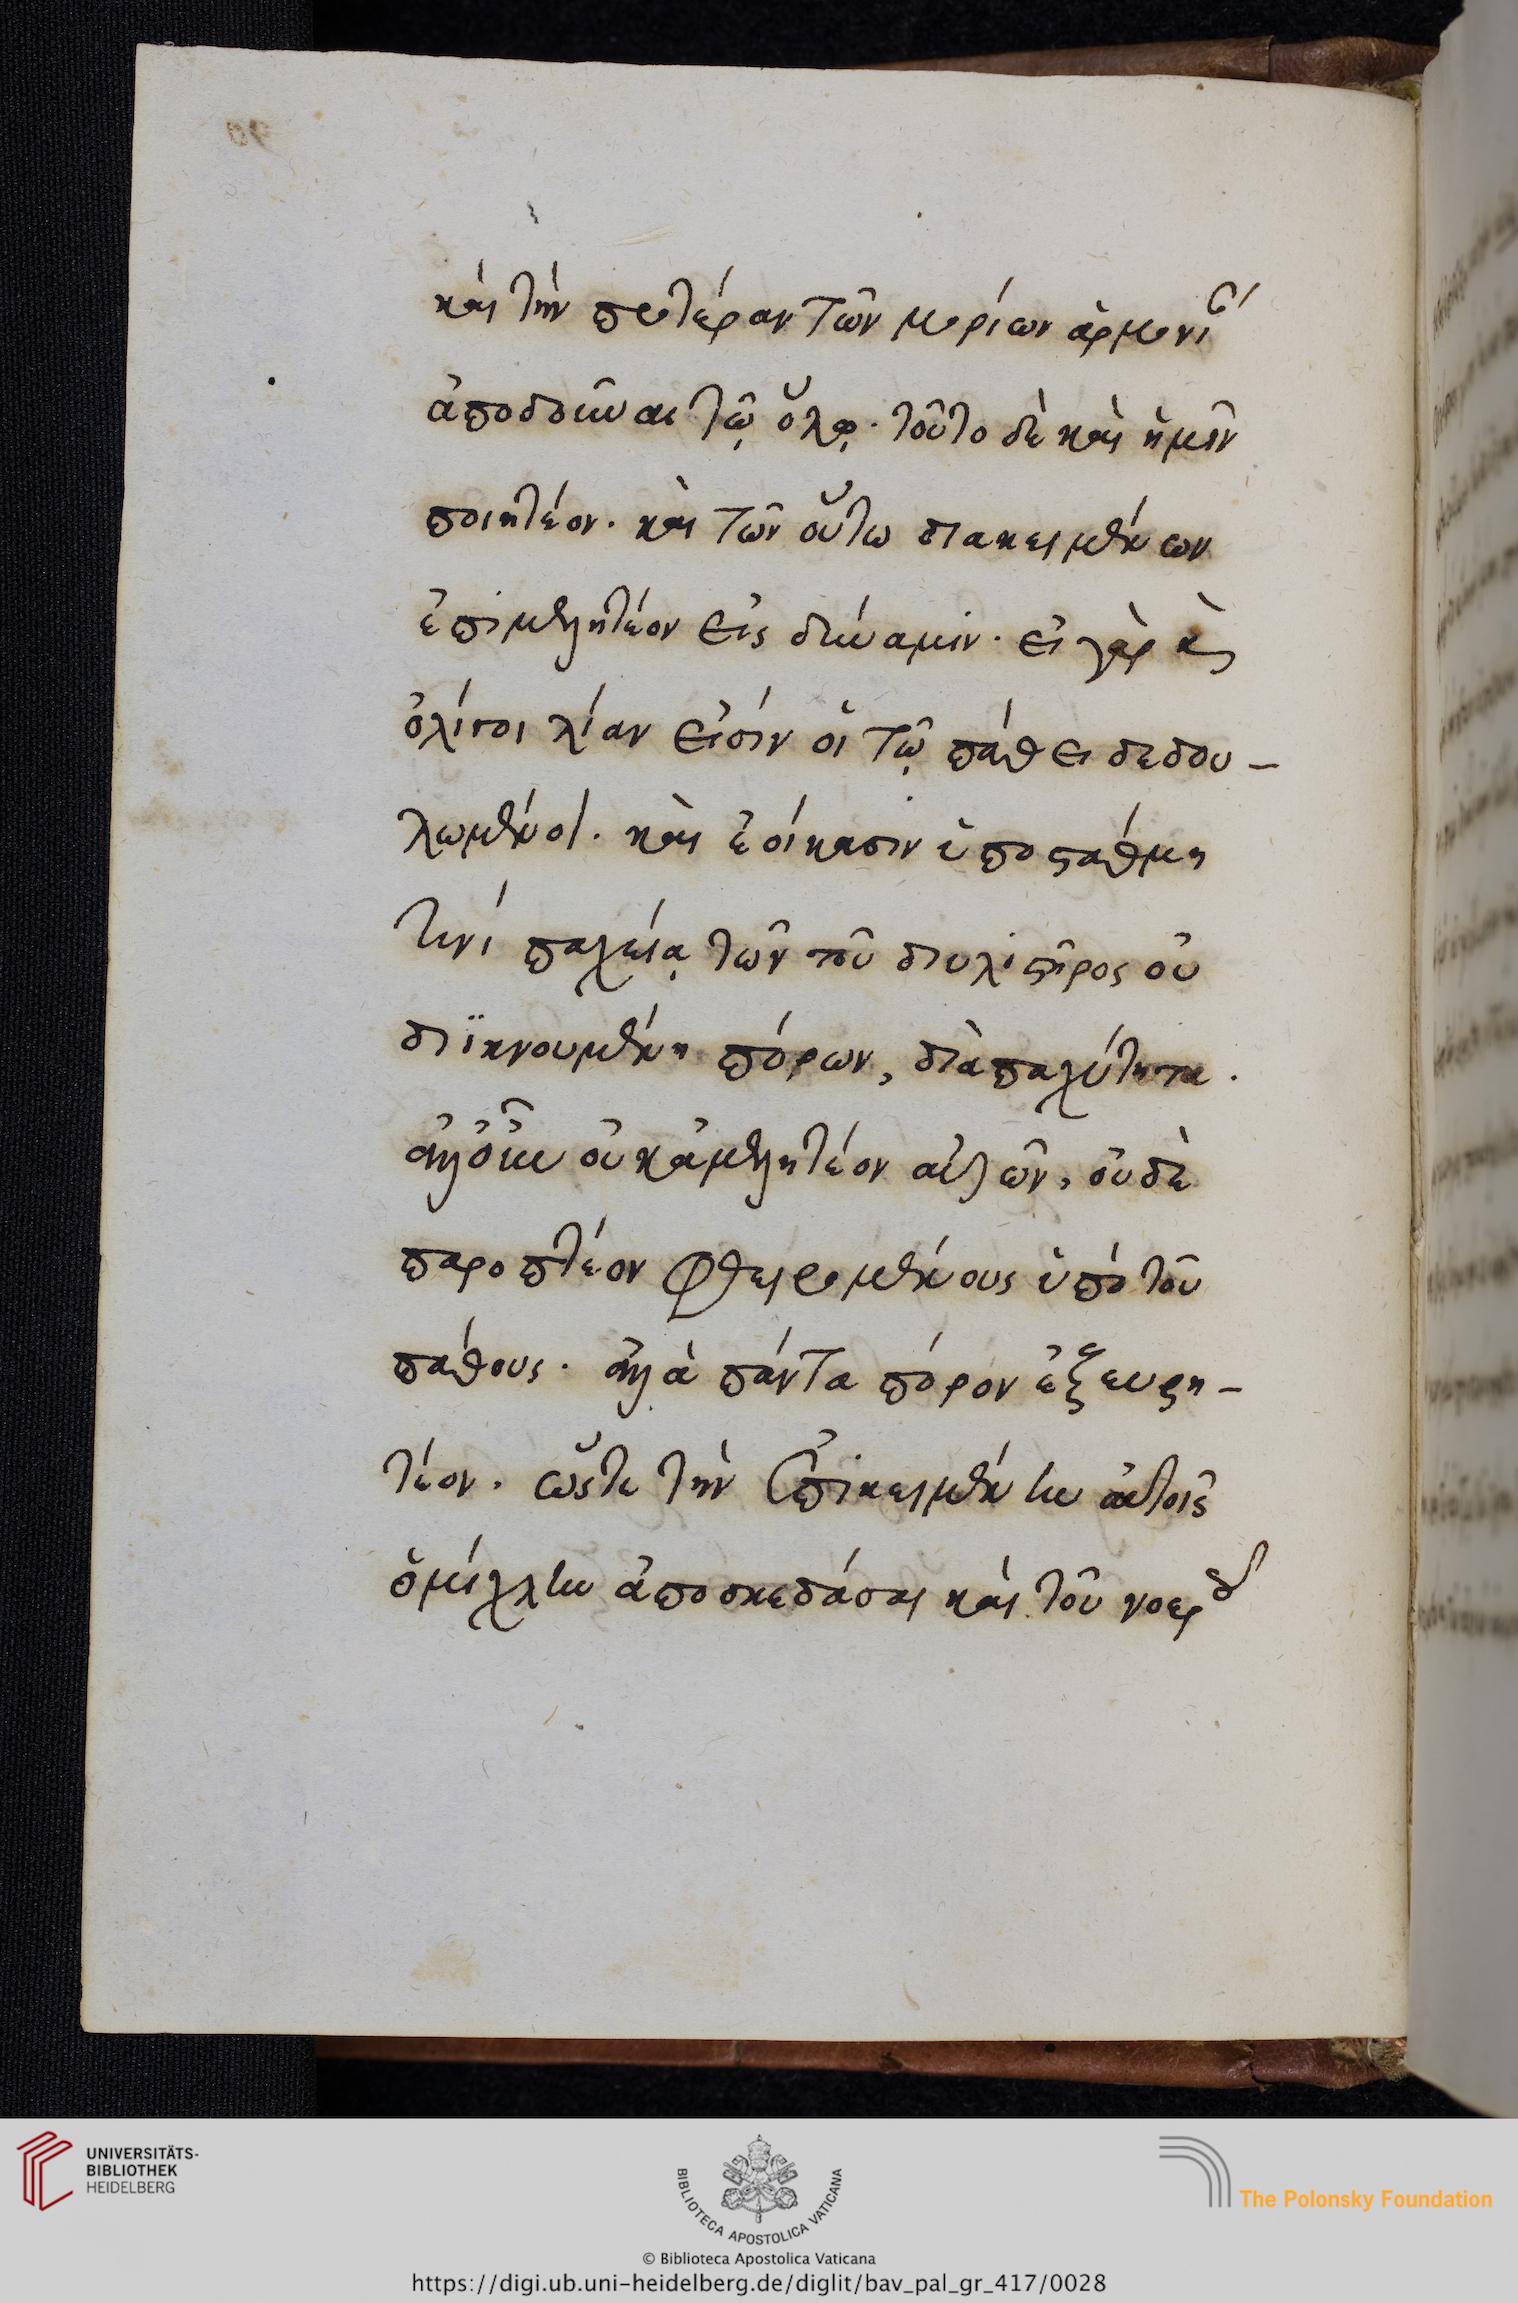 καὶ τὴν προτέραν τῶν μορίων ἁρμονί
ἀποδοῦναι τῷ ὅλῳ· τοῦτο δὲ καὶ ἡμῖν
ποιητέον· καὶ τῶν οὕτω διακειμένων
ἐπιμελητέον εἰς δύναμιν· εἰ γὰρ καὶ
ὀλίγοι λίαν εἰσὶν οἱ τῷ πάθει δεδου-
λωμένοι· καὶ ἐοίκασιν ὑποστάθμη
τινί παχείᾳ τῶν τοῦ διυλιστῆρος οὐ
διϊκνουμένη πόρων, διὰ παχύτητα·
ἀλλ' οὖν οὐκ ἀμελητέον αὐτῶν, οὐδὲ
παροπτέον φθειρομένους ὑπὸ τοῦ
πάθους· ἀλλὰ πάντα πόρον ἐξευρη-
τέον· ὥστε τὴν ἐπικειμένην αὐτοῖς
ὀμίχλην ἀποσκεδάσαι καὶ τοῦ νοεροῦ
UNIVERSITÄTS-
BIBLIOTHEK
HEIDELBERG
BIBLIOTECA APOSTOLICA VATICANA
© Biblioteca Apostolica Vaticana
The Polonsky Foundation
https://digi.ub.uni-heidelberg.de/diglit/bav_pal_gr_417/0028